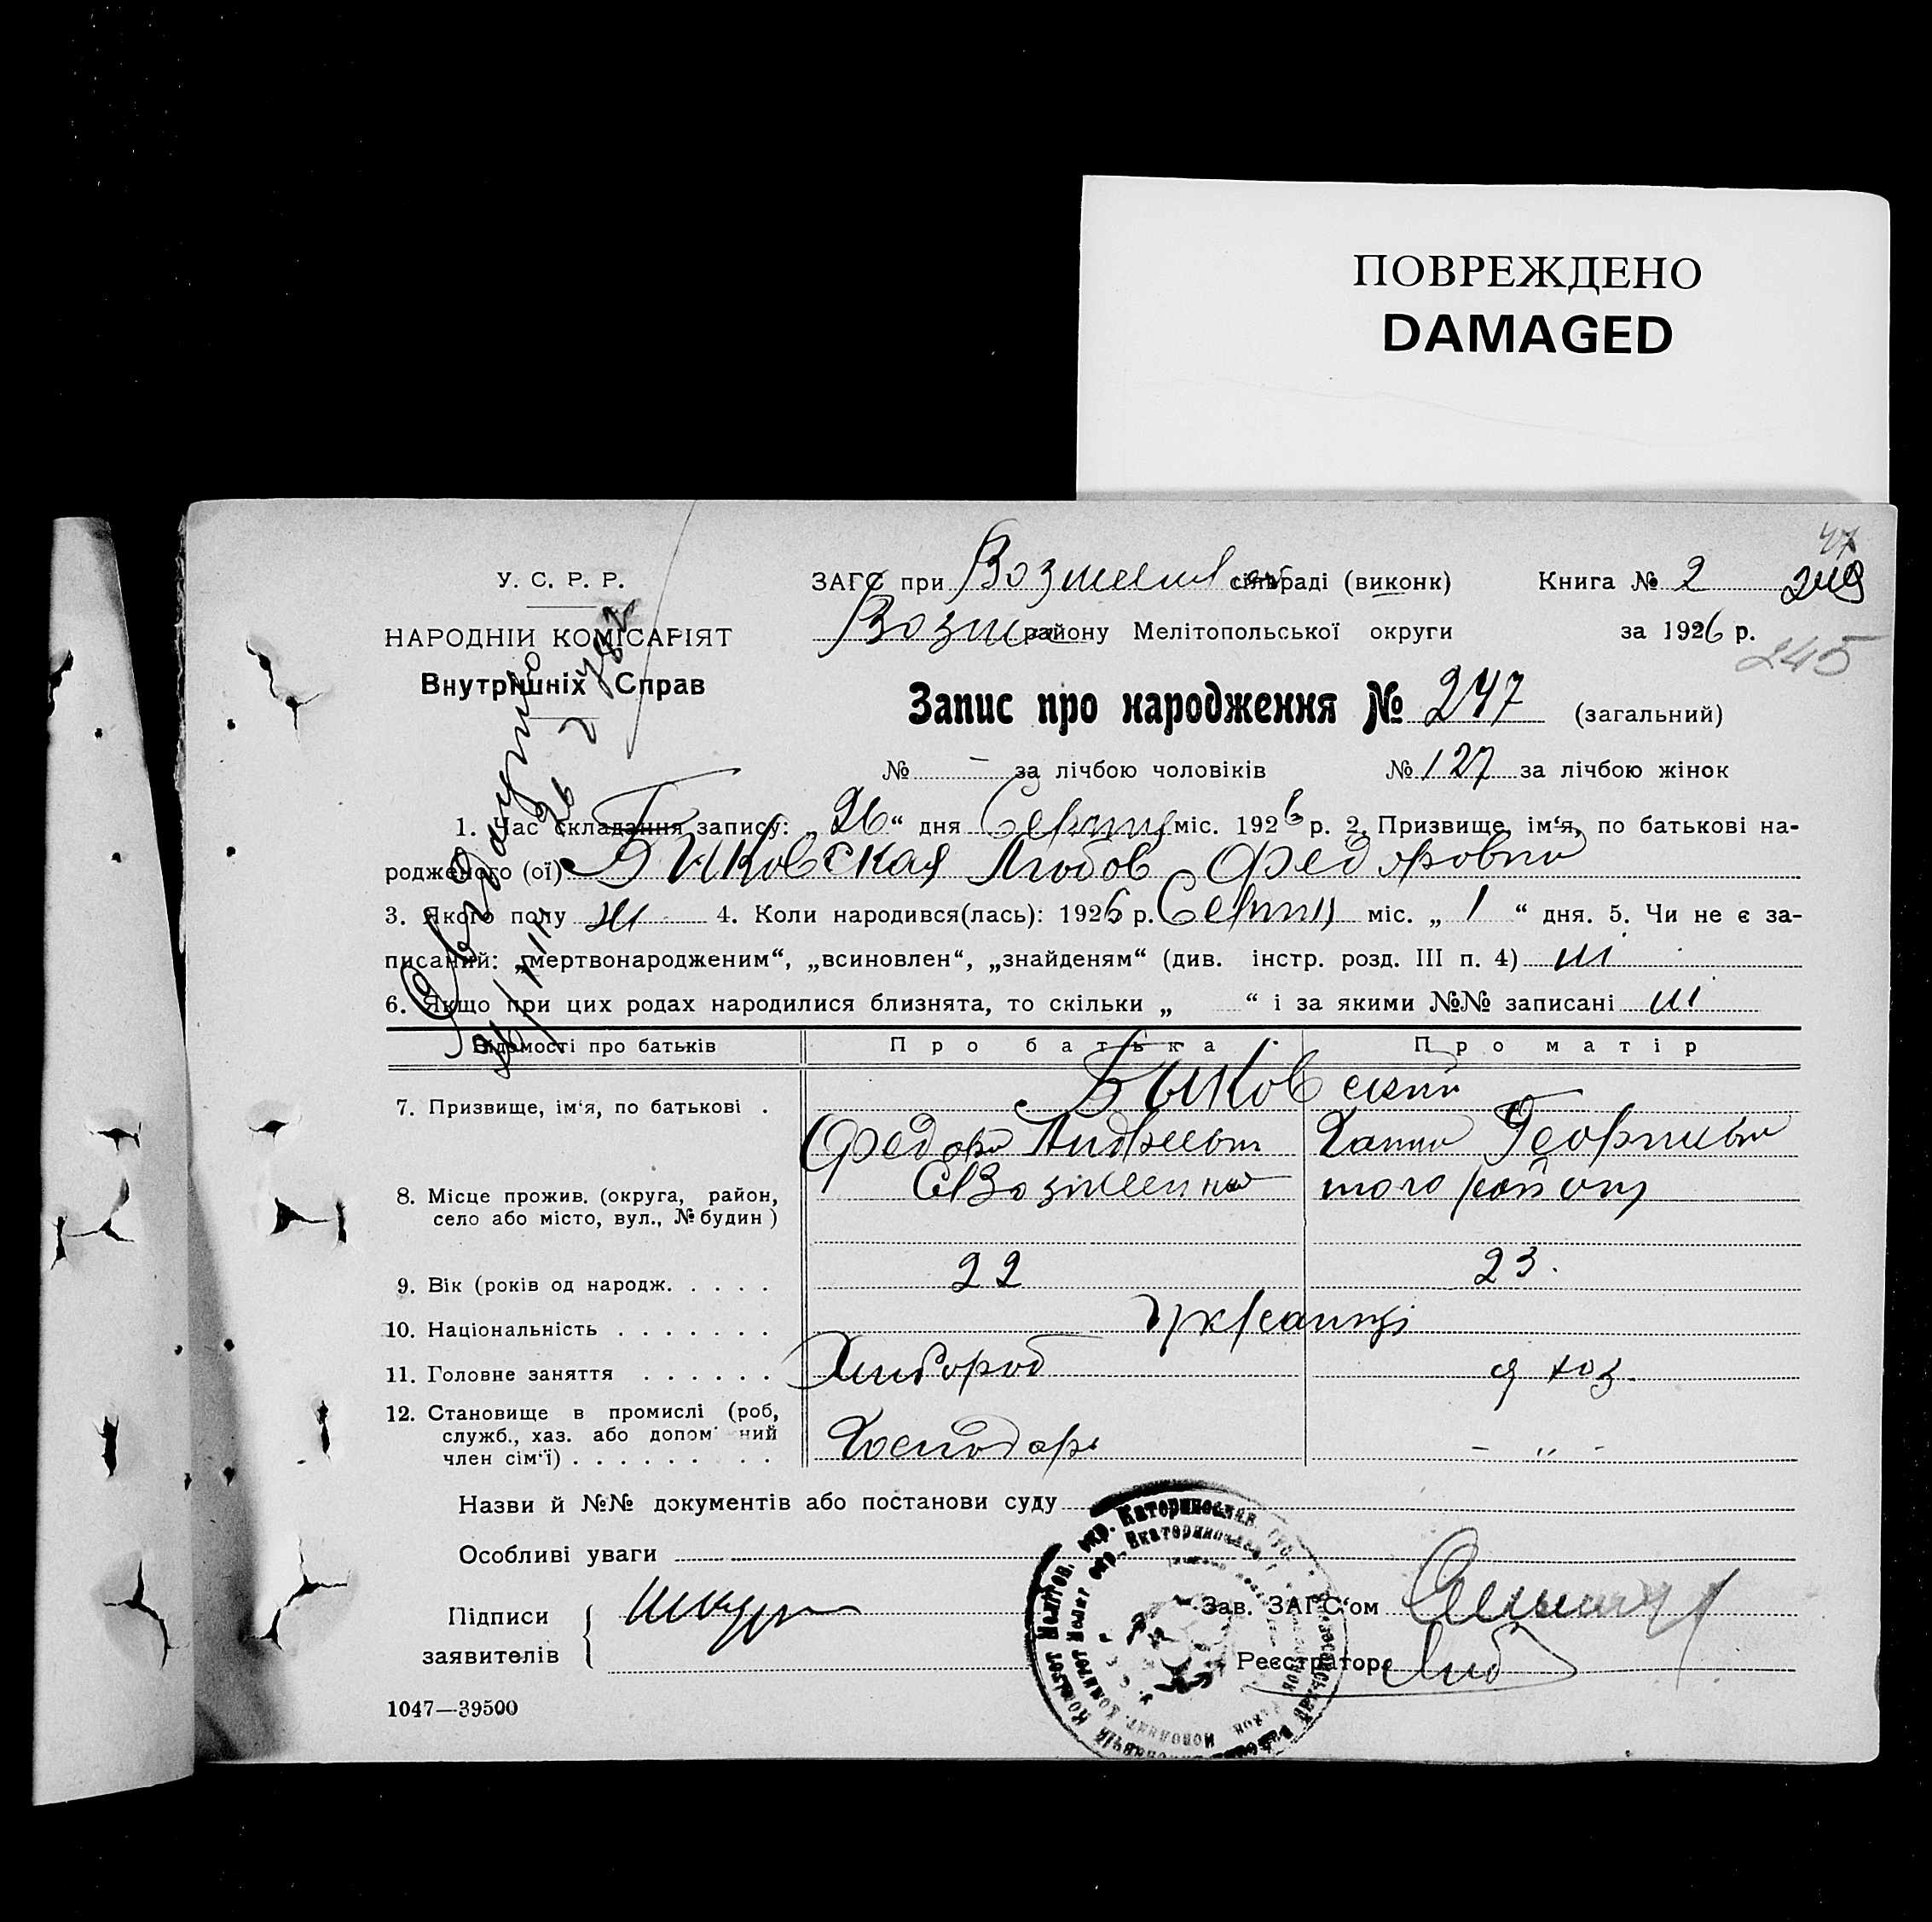 ПОВРЕЖДЕНО
DAMAGED
47
У. С. Р. Р.
ЗАГС при сільраді (виконк) Книга № 2
НАРОДНІЙ КОМІСАРІЯТ
району Мелітопольської округи за 1926 р.
245
Внутрішніх Справ
Запис про народження № 247 (загальний)
№ - за лічбою чоловіків № 127 за лічбою жінок
1. Час складання запису: „26“ дня Серпня міс. 1926 р. 2. Призвище, ім'я, по батькові на-
родженого (ої) Биковская Любов Федоровна
3. Якого полу 4. Коли народився(лась): 1926 р. Серпня міс. „ 1 “ дня. 5. Чи не є за-
писаний: „мертвонародженим“, „всиновлен“, „знайденям“ (див. інстр. розд. III п. 4) ні
6. Якщо при цих родах народилися близнята, то скільки „ “ і за якими №№ записані ні
Відомості про батьків Про батька Про матір
Биковский
7. Призвище, ім'я, по батькові .
Федор Андреев Ганна Георгиевн
8. Місце прожив. (округа, район, того району
село або місто, вул., № будин)
9. Вік (років од народж. . . . . 22 23.
10. Національність . . . . . . . Українці
11. Головне заняття . . . . . . Хлибороб
12. Становище в промислі (роб,
служб., хаз. або допом ний Господарь - " -
член сім'ї) . . . . . . . . .
Назви й №№ документів або постанови суду
Особливі уваги
Підписи Зав. ЗАГС'ом
заявителів Реєстратор
1047—39500